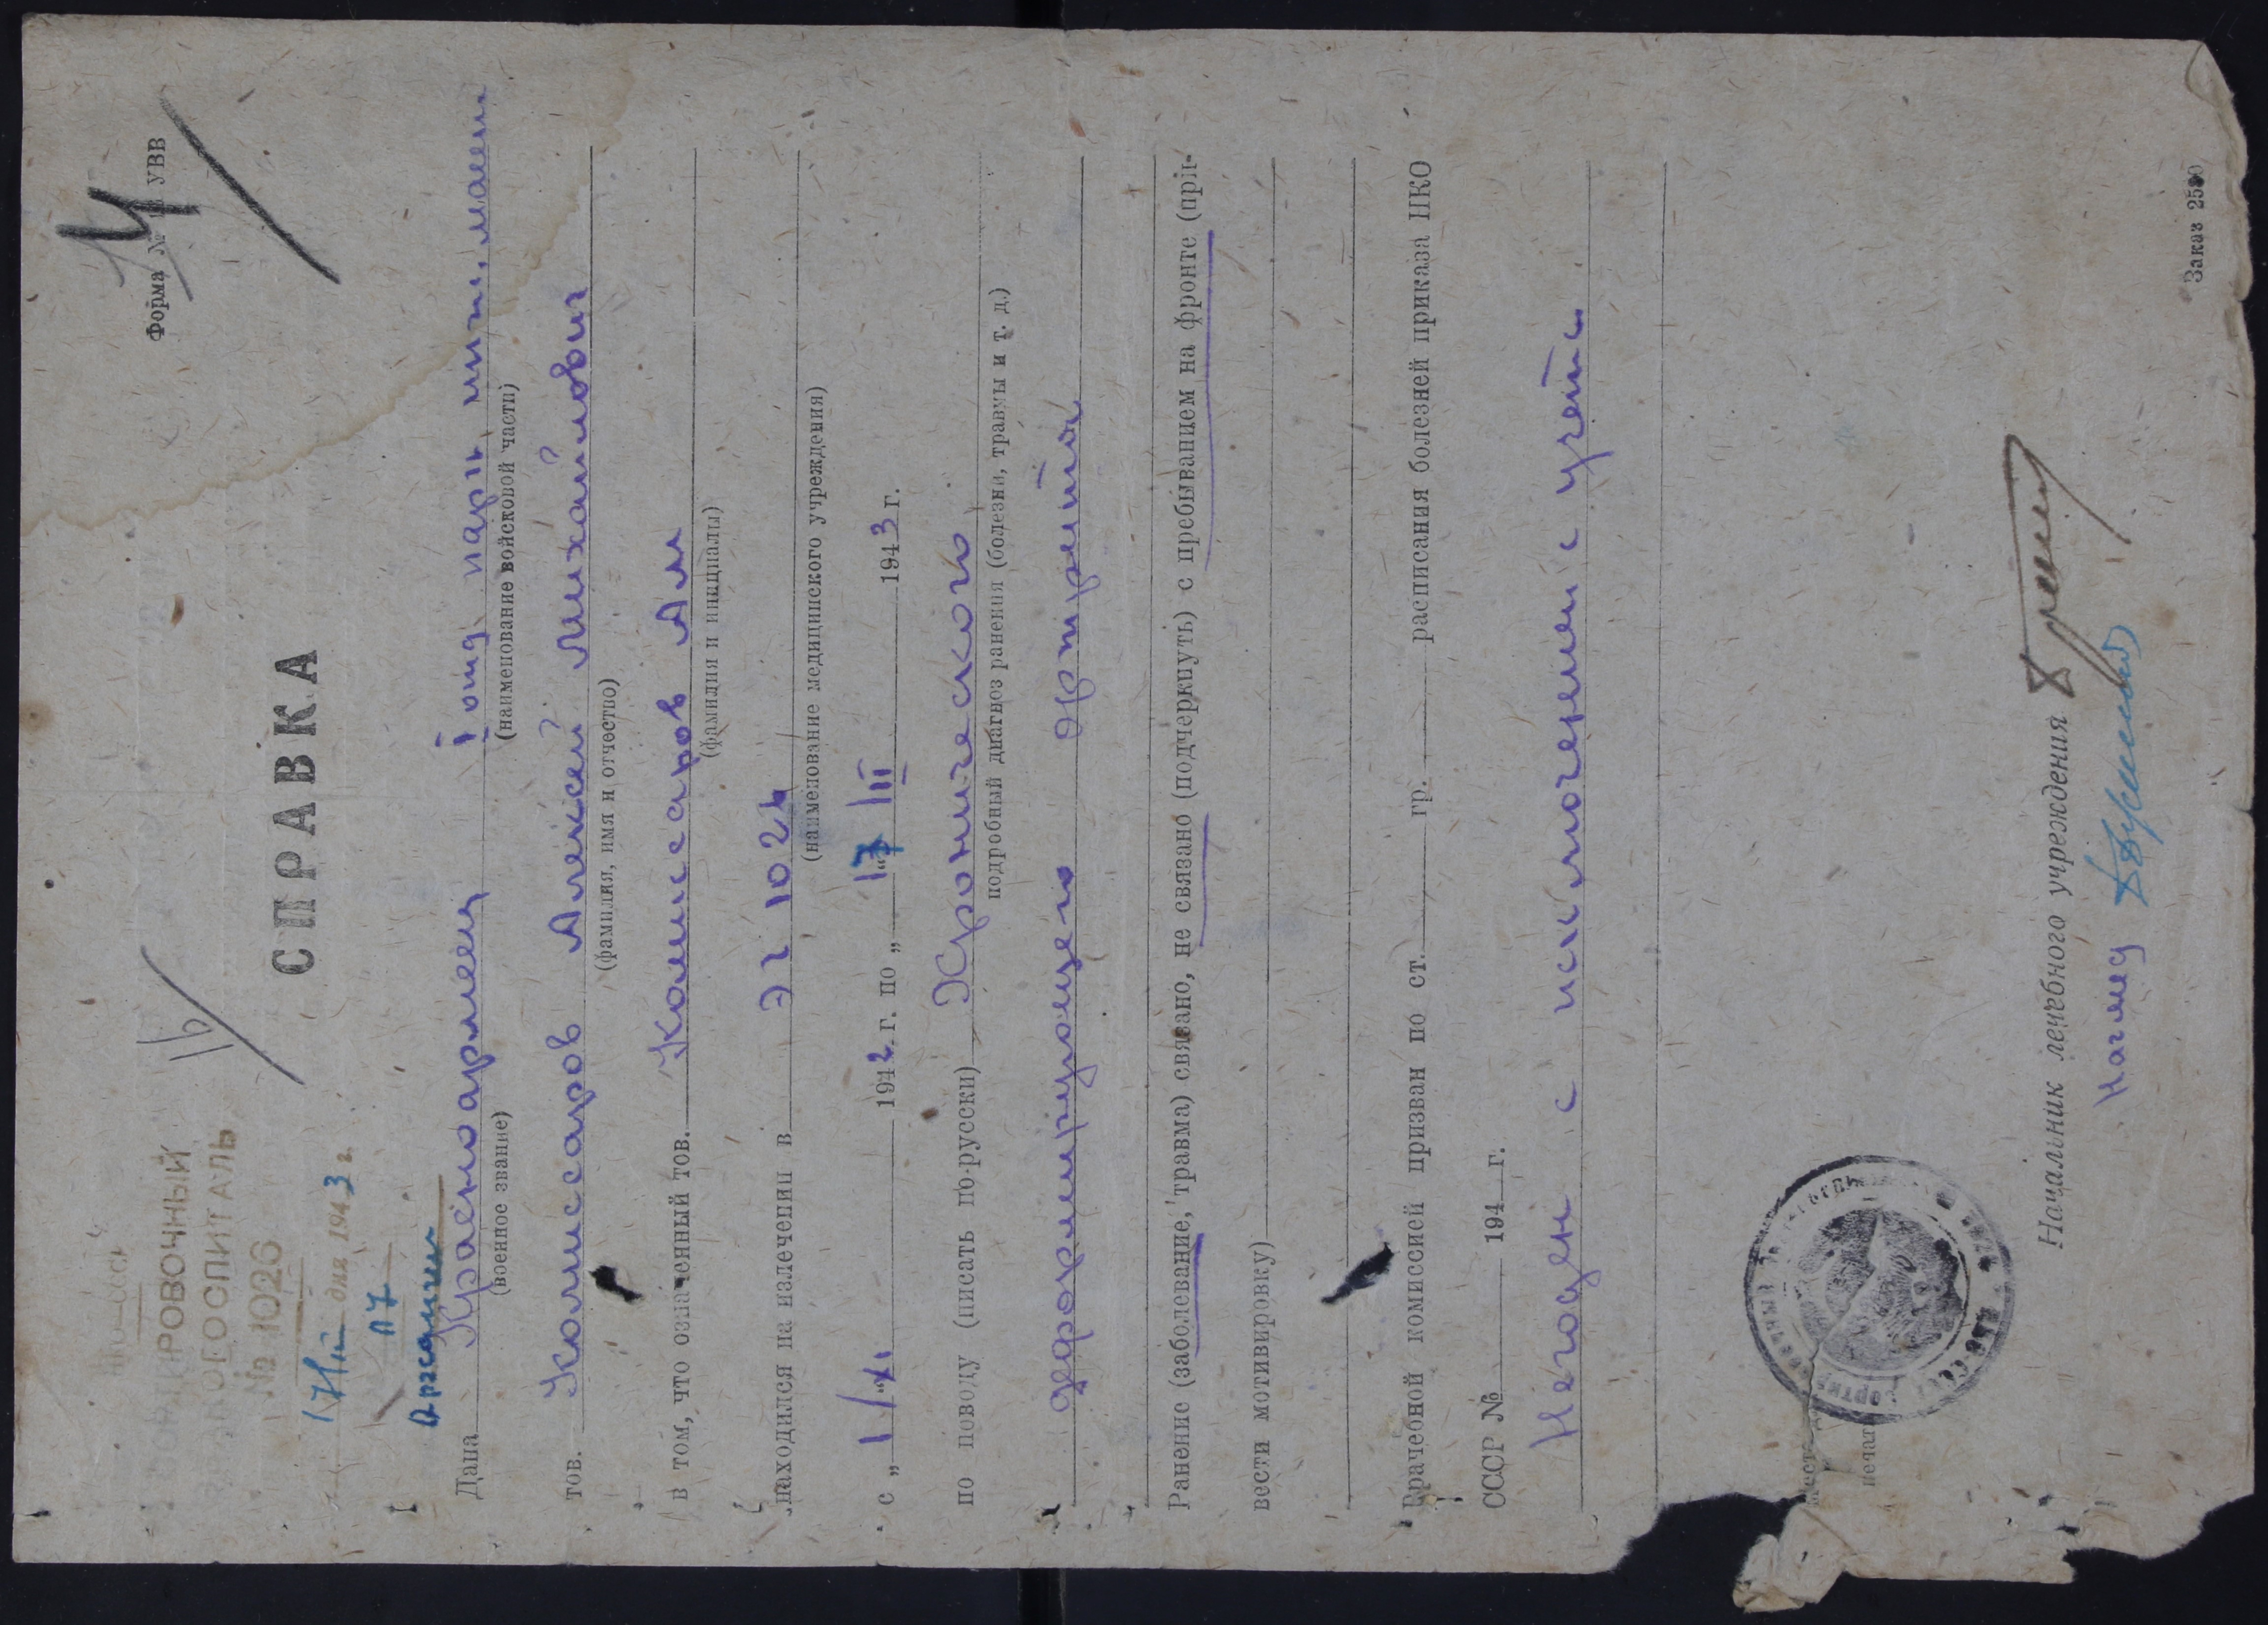 Форма № УВВ
14
16
РОВОЧНЫЙ
ГОСПИТАЛЬ
№ 1026
17 III дня 1943 г.
№ 7
СПРАВКА
Дана Красноармеец I отд
(военное звание) (наименование войсковой части)
тов. Комиссаров Алексей Михайлович
(фамилия, имя и отчество)
в том, что означенный тов. Комиссаров А м
(фамилия и инициалы)
находился на излечении в ЭГ 1026
(наименование медицинского учреждения)
с „1“ XI 1942 г. по „17“ III 1943 г.
по поводу (писать по-русски) Хронического
подробный диагноз ранения (болезни, травмы и т. д.)
деформирующего артрита
Ранение (заболевание, травма) связано, не связано (подчеркнуть) с пребыванием на фронте (при-
вести мотивировку)
Врачебной комиссией призван по ст. гр. расписания болезней приказа НКО
СССР № 194 г.
Негоден с исключением с учета
печат
Начальник лечебного учреждения
Начмед
Заказ 2580